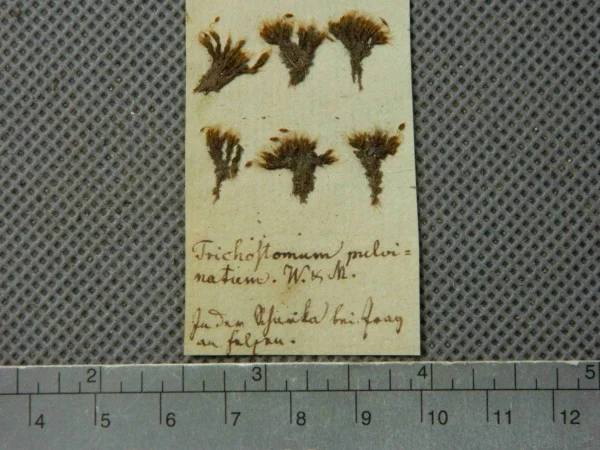 Trichostomum pulvi=
natum. W. & M.
In der Scharka bei Prag
an felsen.
2 3 4 5
4 5 6 7 8 9 10 11 12